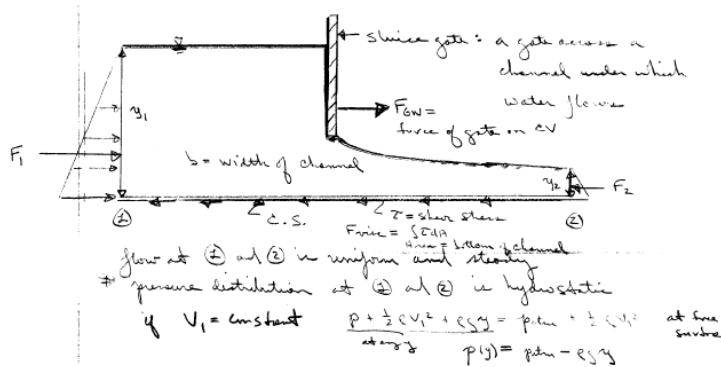 sluice gate: a gate across a
channel under which
water flows
F_GW =
force of gate on CV
y₁
F₁
b = width of channel
y₂
F₂
①
C.S.
τ = shear stress
②
F_visc = ∫τdA
Area = bottom of channel
flow at ① ad ② is uniform and steady
* pressure distribution at ① ad ② is hydrostatic
if V₁ = constant p + ½ρV₁² + ρgy = patm + ½ρV₁² at free
surface
at any y p(y) = patm − ρgy